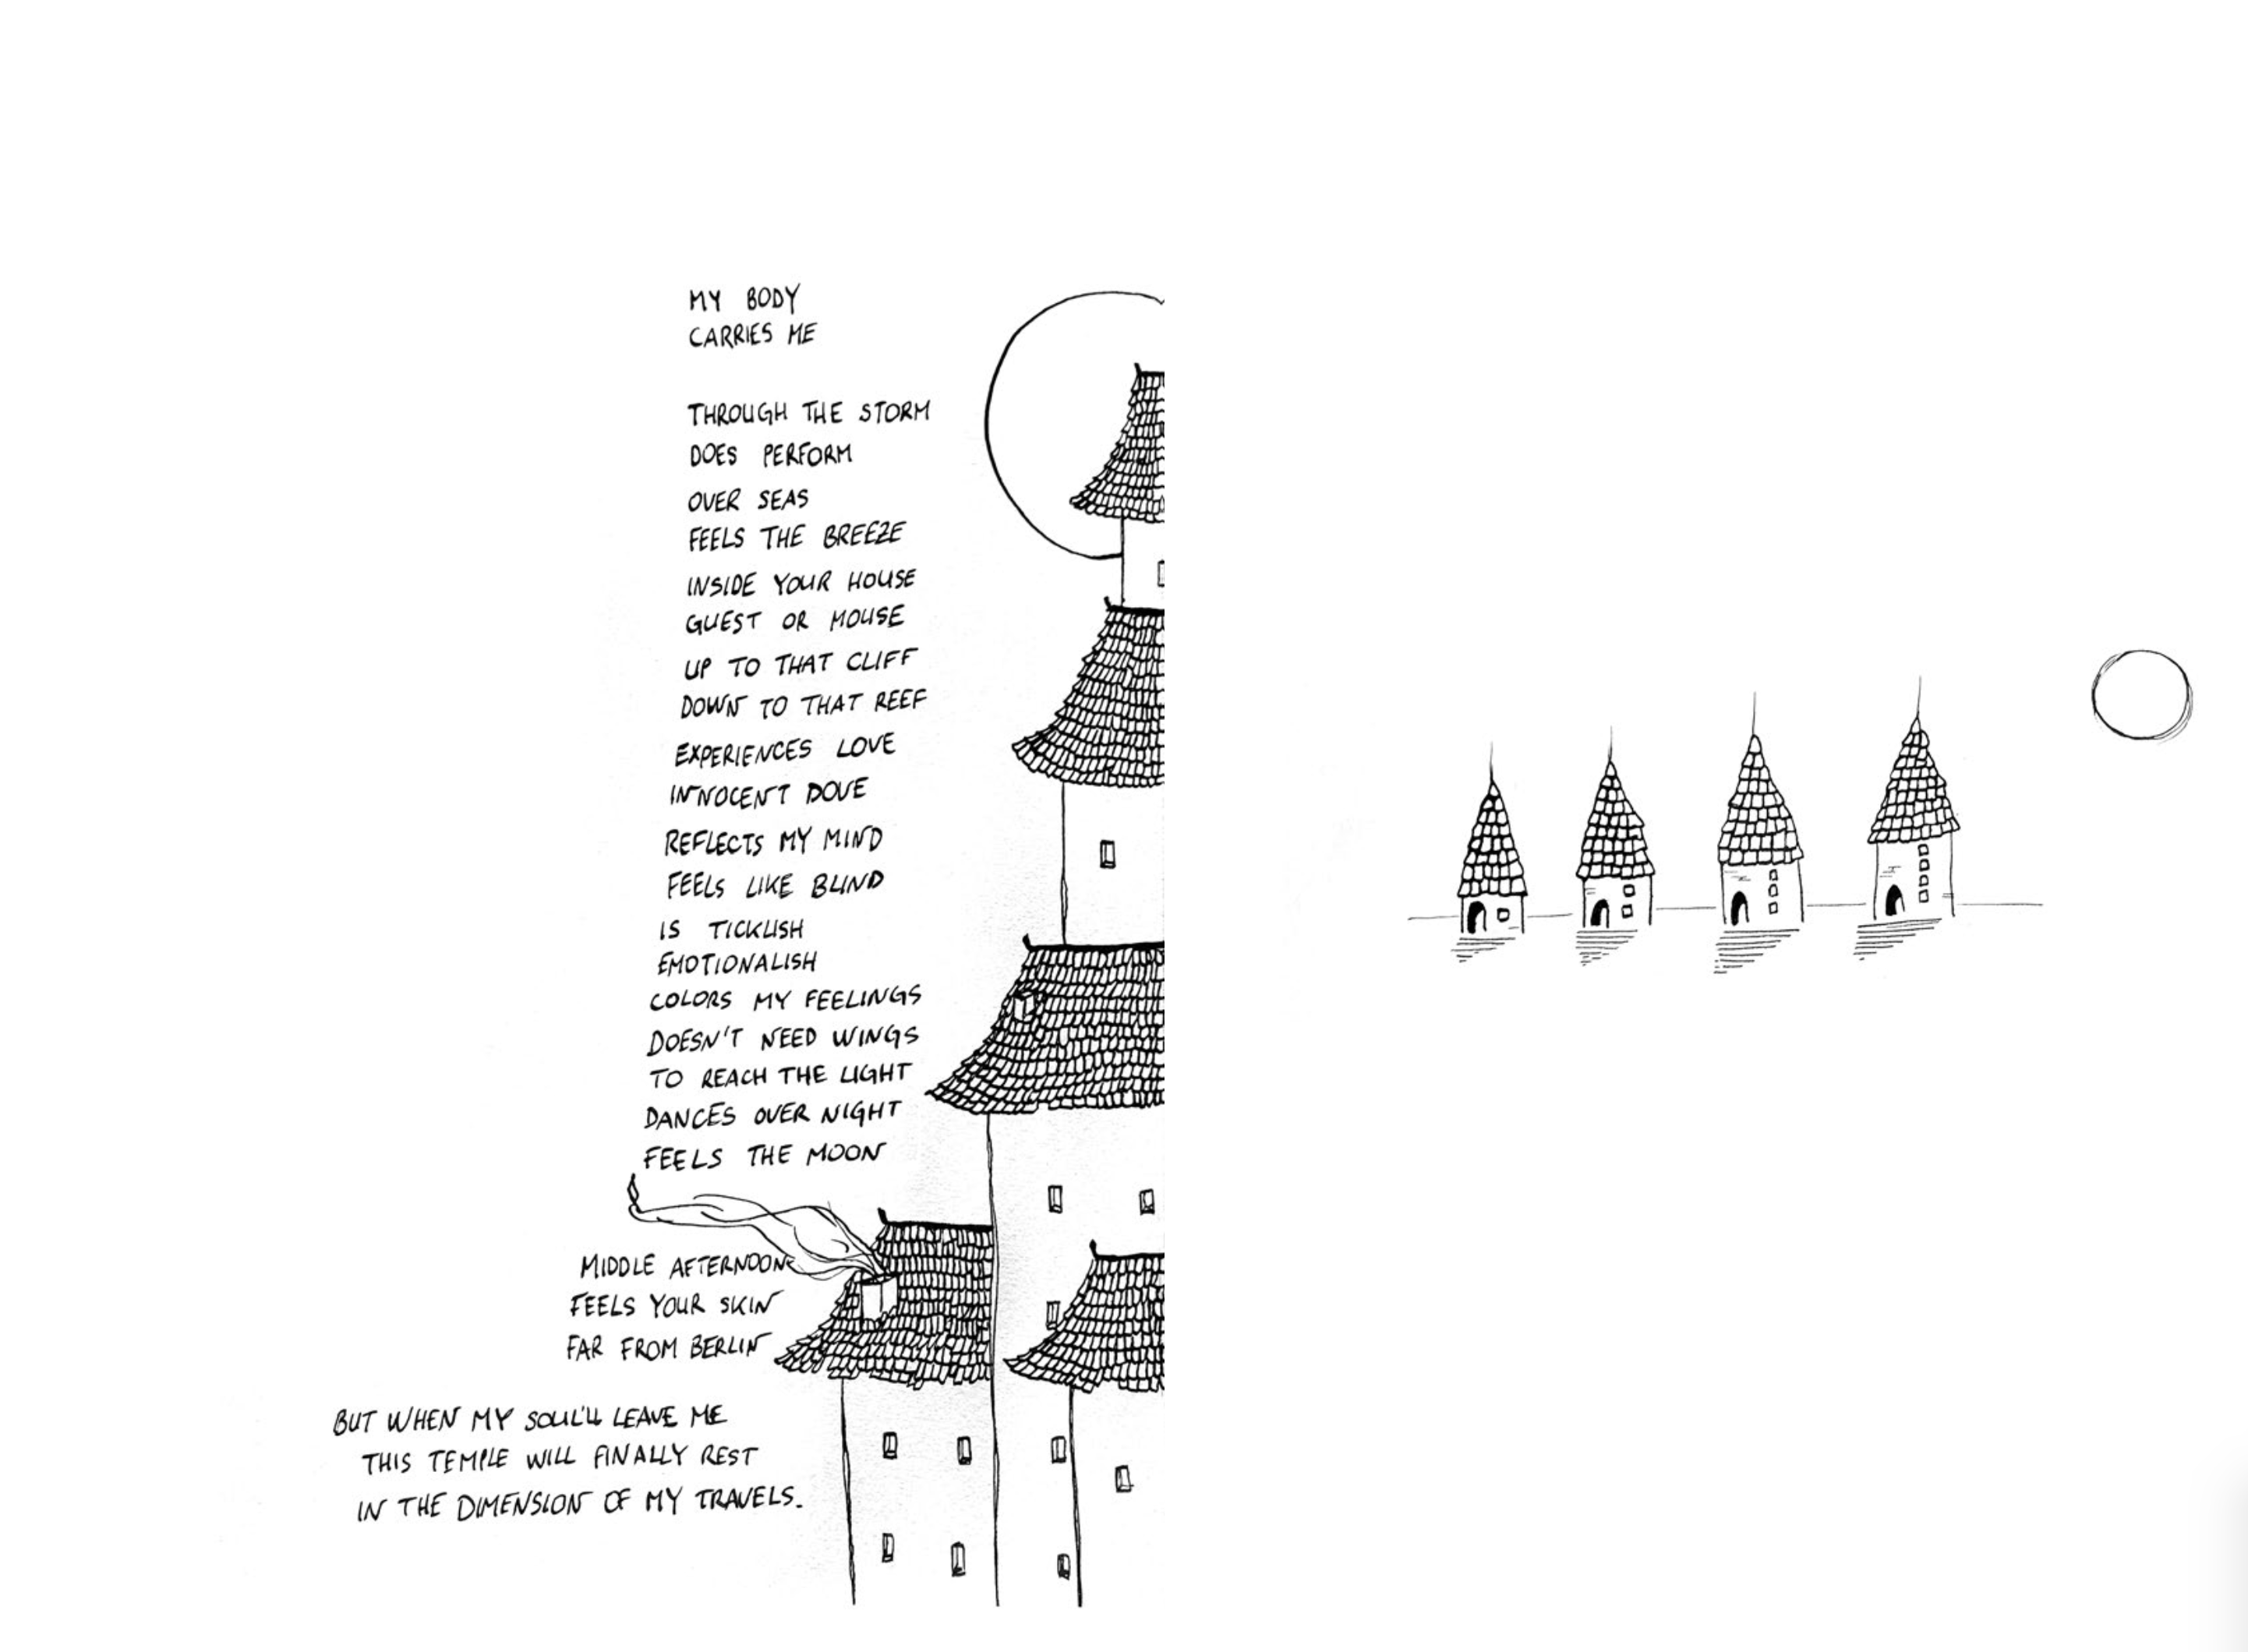 MY BODY
CARRIES ME
THROUGH THE STORM
DOES PERFORM
OVER SEAS
FEELS THE BREEZE
INSIDE YOUR HOUSE
GUEST OR MOUSE
UP TO THAT CLIFF
DOWN TO THAT REEF
EXPERIENCES LOVE
INNOCENT DOVE
REFLECTS MY MIND
FEELS LIKE BLIND
IS TICKLISH
EMOTIONALISH
COLORS MY FEELINGS
DOESN'T NEED WINGS
TO REACH THE LIGHT
DANCES OVER NIGHT
FEELS THE MOON
MIDDLE AFTERNOON
FEELS YOUR SKIN
FAR FROM BERLIN
BUT WHEN MY SOUL'LL LEAVE ME
THIS TEMPLE WILL FINALLY REST
IN THE DIMENSION OF MY TRAVELS.